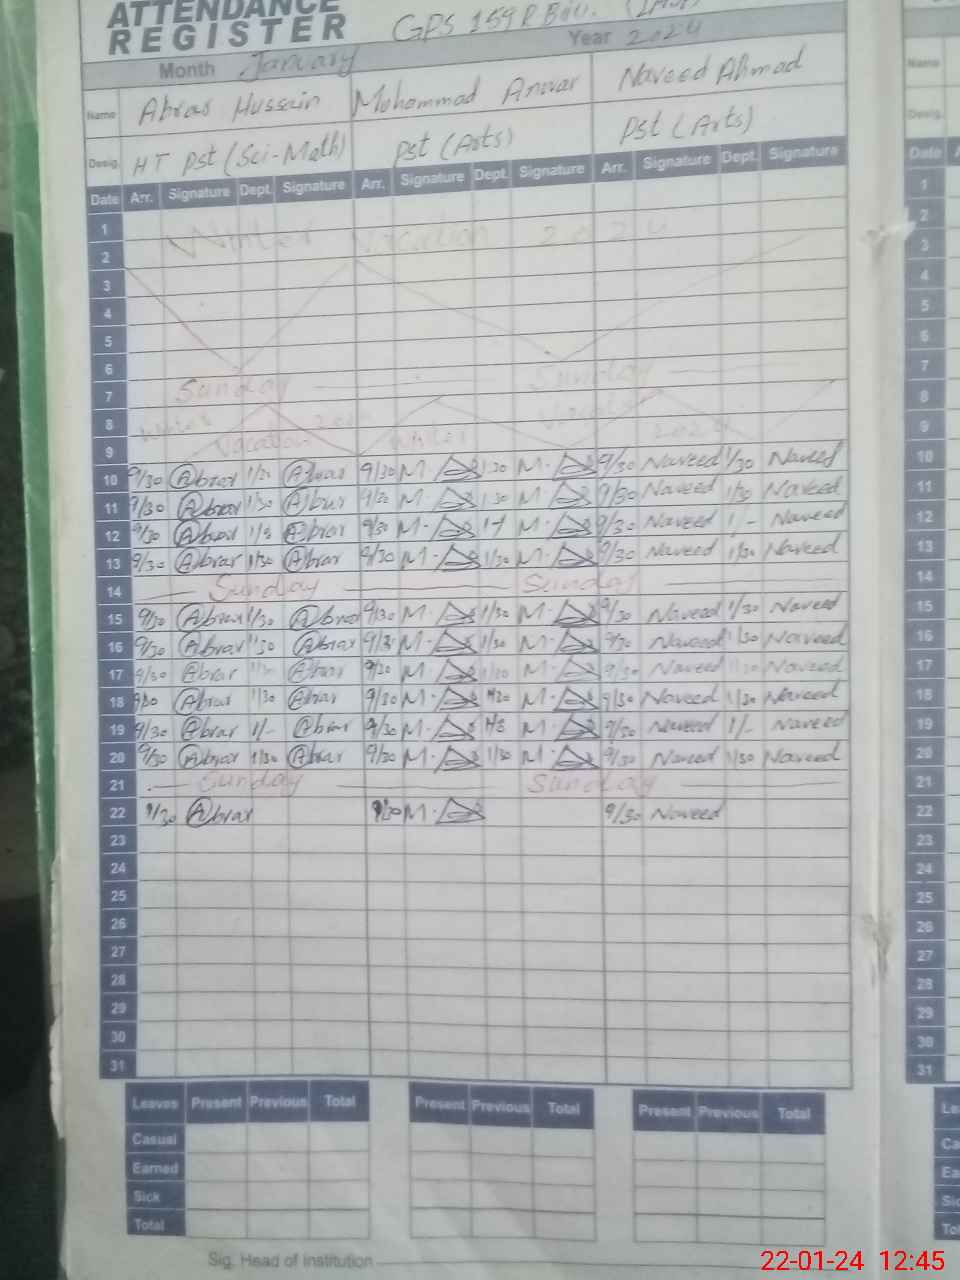 ATTENDANCE
REGISTER GPS 159 P
Month January Year 2024
Name Abrar Hussain Mohammad Anwar Naveed Ahmad Name
Desig. HT Pst (Sci-Math) Pst (Arts) Pst (Arts) Desig.
Date Arr. Signature Dept. Signature Arr. Signature Dept. Signature Arr. Signature Dept. Signature Date
1 Winter Vacation 2024 1
2 2
3 3
4 4
5 5
6 6
7 Sunday Sunday 7
8 Winter 8
9 Vacation Winter 2024 9
10 9/30 Abrar 1/30 Abrar 9/30 M. 1/30 M. 9/30 Naveed 1/30 Naveed 10
11 9/30 Abrar 1/30 Abrar 9/30 M. 1/30 M. 9/30 Naveed 1/30 Naveed 11
12 9/30 Abrar Abrar 9/30 M. M. 9/30 Naveed 1/- Naveed 12
13 9/30 Abrar 1/30 Abrar 9/30 M. 1/30 M. 9/30 Naveed 1/30 Naveed 13
14 Sunday Sunday 14
15 9/30 Abrar 1/30 Abrar 9/30 M. 1/30 M. 9/30 Naveed 1/30 Naveed 15
16 9/30 Abrar 1/30 Abrar 9/30 M. 1/30 M. 9/30 Naveed 1/30 Naveed 16
17 9/30 Abrar 1/30 Abrar 9/30 M. 1/30 M. 9/30 Naveed 1/30 Naveed 17
18 9/30 Abrar 1/30 Abrar 9/30 M. 1/30 M. 9/30 Naveed 1/30 Naveed 18
19 9/30 Abrar 1/- Abrar 9/30 M. M. 9/30 Naveed 1/- Naveed 19
20 9/30 Abrar 1/30 Abrar 9/30 M. 1/30 M. 9/30 Naveed 1/30 Naveed 20
21 Sunday Sunday 21
22 9/30 Abrar 9/30 M. 9/30 Naveed 22
23 23
24 24
25 25
26 26
27 27
28 28
29 29
30 30
31 31
Leaves Present Previous Total Present Previous Total Present Previous Total
Casual
Earned
Sick
Total
Sig. Head of Institution
22-01-24 12:45